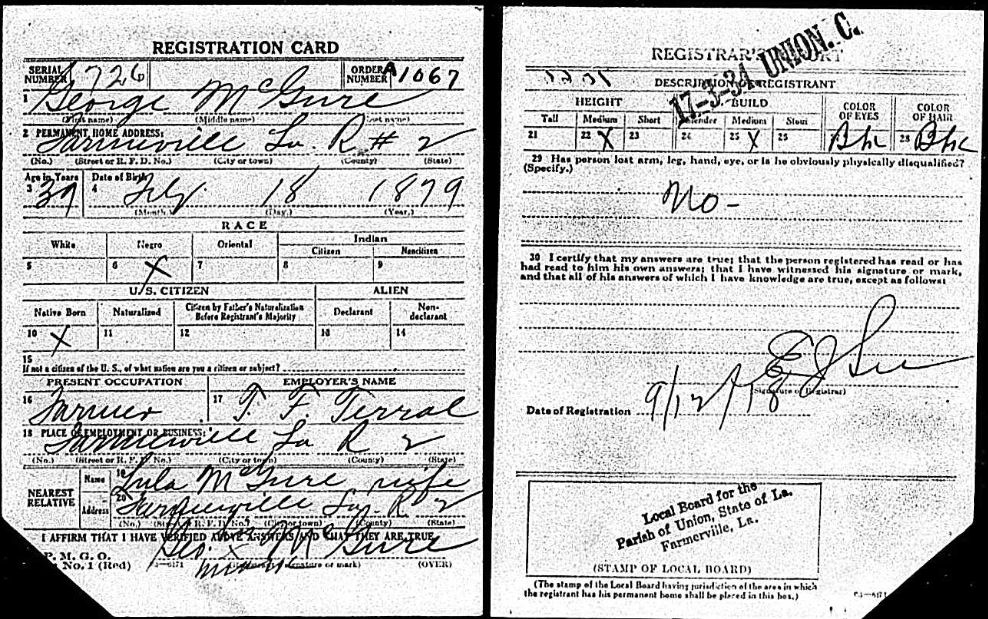 REGISTRATION CARD
SERIAL NUMBER 726 ORDER NUMBER A1067
1 George McGure
(First name) (Middle name) (Last name)
2 PERMANENT HOME ADDRESS:
Farmerville La. R # 2
(No.) (Street or R. F. D. No.) (City or town) (County) (State)
Age in Years Date of Birth
3 39 4 July 18 1879
(Month.) (Day.) (Year.)
RACE
White Negro Oriental Indian
Citizen Noncitizen
5 6 X 7 8 9
U. S. CITIZEN ALIEN
Native Born Naturalized Citizen by Father's Naturalization Before Registrant's Majority Declarant Non-declarant
10 X 11 12 13 14
15
If not a citizen of the U. S., of what nation are you a citizen or subject?
PRESENT OCCUPATION EMPLOYER'S NAME
16 Farmer 17 T. F. Terral
18 PLACE OF EMPLOYMENT OR BUSINESS:
Farmerville La R 2
(No.) (Street or R. F. D. No.) (City or town) (County) (State)
NEAREST RELATIVE Name 19 Lula McGure wife
Address 20 Farmerville La R 2
(No.) (Street or R. F. D. No.) (City or town) (County) (State)
I AFFIRM THAT I HAVE VERIFIED ABOVE ANSWERS AND THAT THEY ARE TRUE
P. M. G. O.
No. 1 (Red) Geo. X McGure
(Registrant's signature or mark) (OVER)
REGISTRAR'S REPORT
17-3-34 UNION. C.
DESCRIPTION OF REGISTRANT
HEIGHT BUILD COLOR OF EYES COLOR OF HAIR
Tall Medium Short Slender Medium Stout
21 22 X 23 24 25 X 26 27 Blk 28 Blk
29 Has person lost arm, leg, hand, eye, or is he obviously physically disqualified?
(Specify.)
No-
30 I certify that my answers are true; that the person registered has read or has
had read to him his own answers; that I have witnessed his signature or mark,
and that all of his answers of which I have knowledge are true, except as follows:
E J Lee
(Signature of Registrar)
Date of Registration 9/12/18
Local Board for the
Parish of Union, State of La.
Farmerville, La.
(STAMP OF LOCAL BOARD)
(The stamp of the Local Board having jurisdiction of the area in which
the registrant has his permanent home shall be placed in this box.)